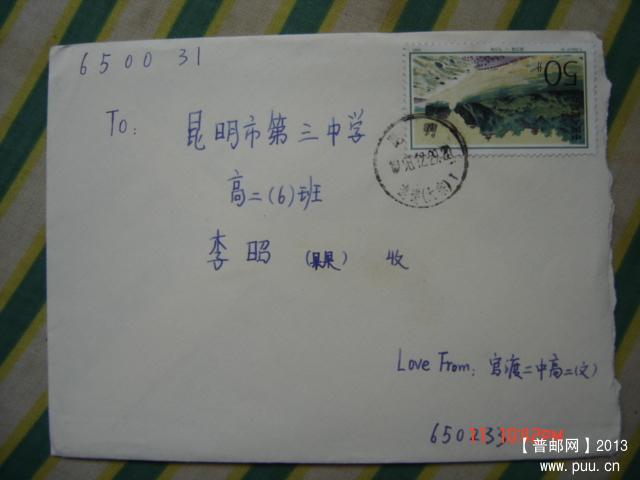 6500 31
50分
To: 昆明市第三中学
高二(6)班
李昭 (果果) 收
Love From: 官渡二中高二(文)
650233
【普邮网】2013
www.puu.cn